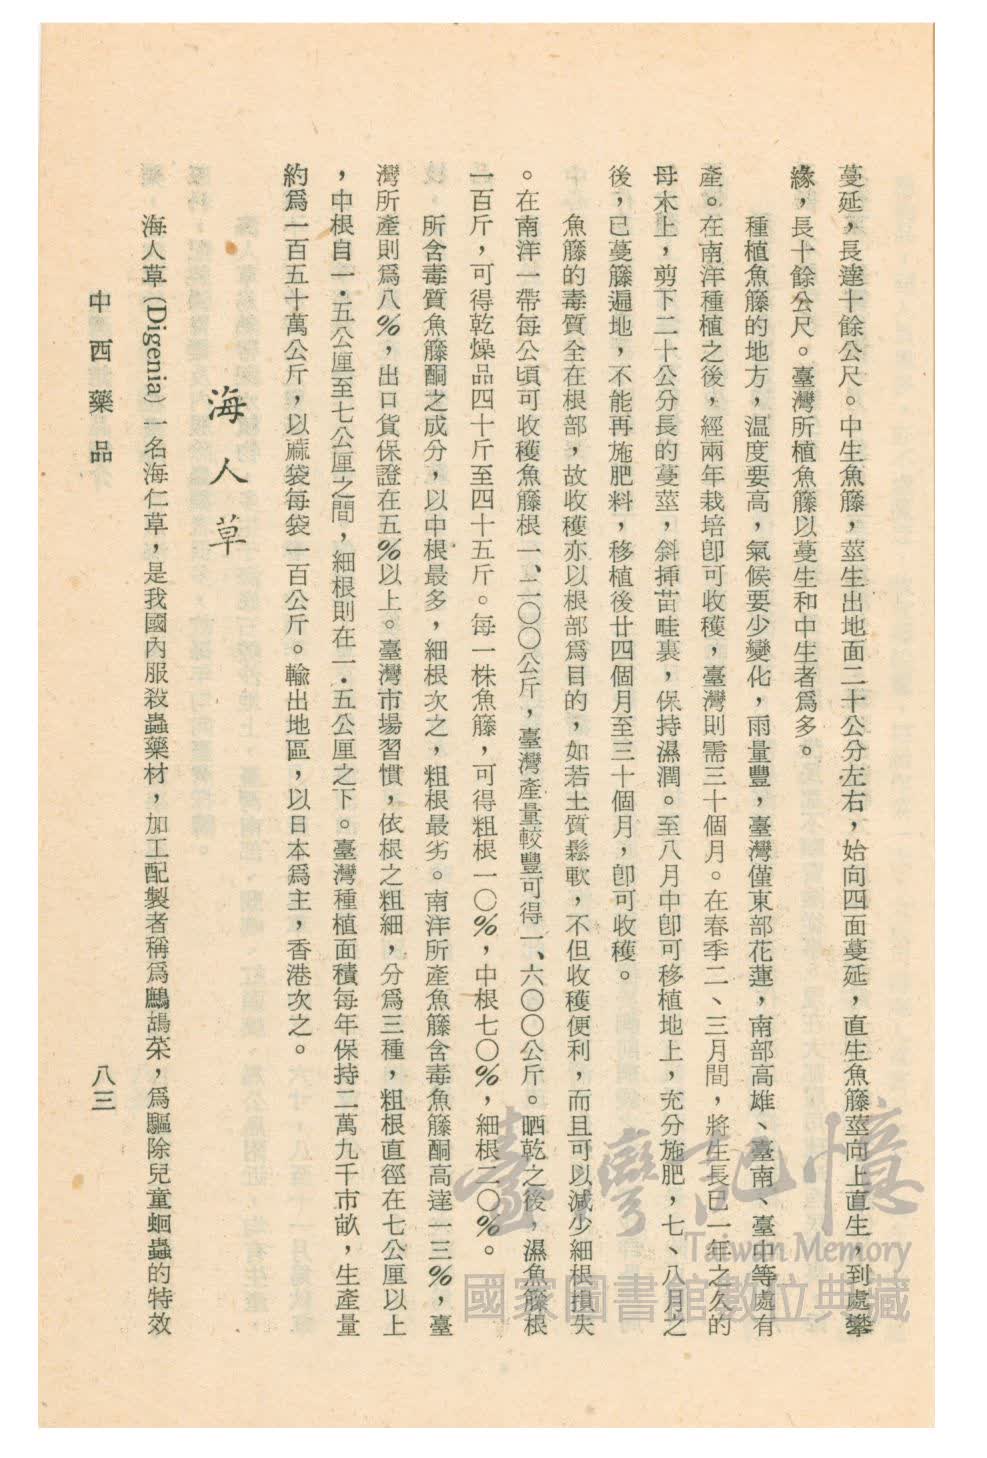 蔓延，長達十餘公尺。中生魚籐，莖生出地面二十公分左右，始向四面蔓延，直生魚籐莖向上直生，到處攀
緣，長十餘公尺。臺灣所植魚籐以蔓生和中生者爲多。
種植魚籐的地方，温度要高，氣候要少變化，雨量豐，臺灣僅東部花蓮，南部高雄、臺南、臺中等處有
產。在南洋種植之後，經兩年栽培卽可收穫，臺灣則需三十個月。在春季二、三月間，將生長已一年之久的
母木上，剪下二十公分長的蔓莖，斜挿苗畦裏，保持濕潤。至八月中卽可移植地上，充分施肥，七、八月之
後，已蔓籐遍地，不能再施肥料，移植後廿四個月至三十個月，卽可收穫。
魚籐的毒質全在根部，故收穫亦以根部爲目的，如若土質鬆軟，不但收穫便利，而且可以減少細根損失
。在南洋一帶每公頃可收穫魚籐根一、二〇〇公斤，臺灣產量較豐可得一、六〇〇公斤。晒乾之後，濕魚籐根
一百斤，可得乾燥品四十斤至四十五斤。每一株魚籐，可得粗根一〇％，中根七〇％，細根二〇％。
所含毒質魚籐酮之成分，以中根最多，細根次之，粗根最劣。南洋所產魚籐含毒魚籐酮高達一三％，臺
灣所產則爲八％，出口貨保證在五％以上。臺灣市場習慣，依根之粗細，分爲三種，粗根直徑在七公厘以上
，中根自一・五公厘至七公厘之間，細根則在一・五公厘之下。臺灣種植面積每年保持二萬九千市畝，生產量
約爲一百五十萬公斤，以蔴袋每袋一百公斤。輸出地區，以日本爲主，香港次之。
海人草
海人草(Digenia)一名海仁草，是我國內服殺蟲藥材，加工配製者稱爲鷓鴣菜，爲驅除兒童蛔蟲的特效
中西藥品
八三
臺灣記憶
Taiwan Memory
國家圖書館數位典藏